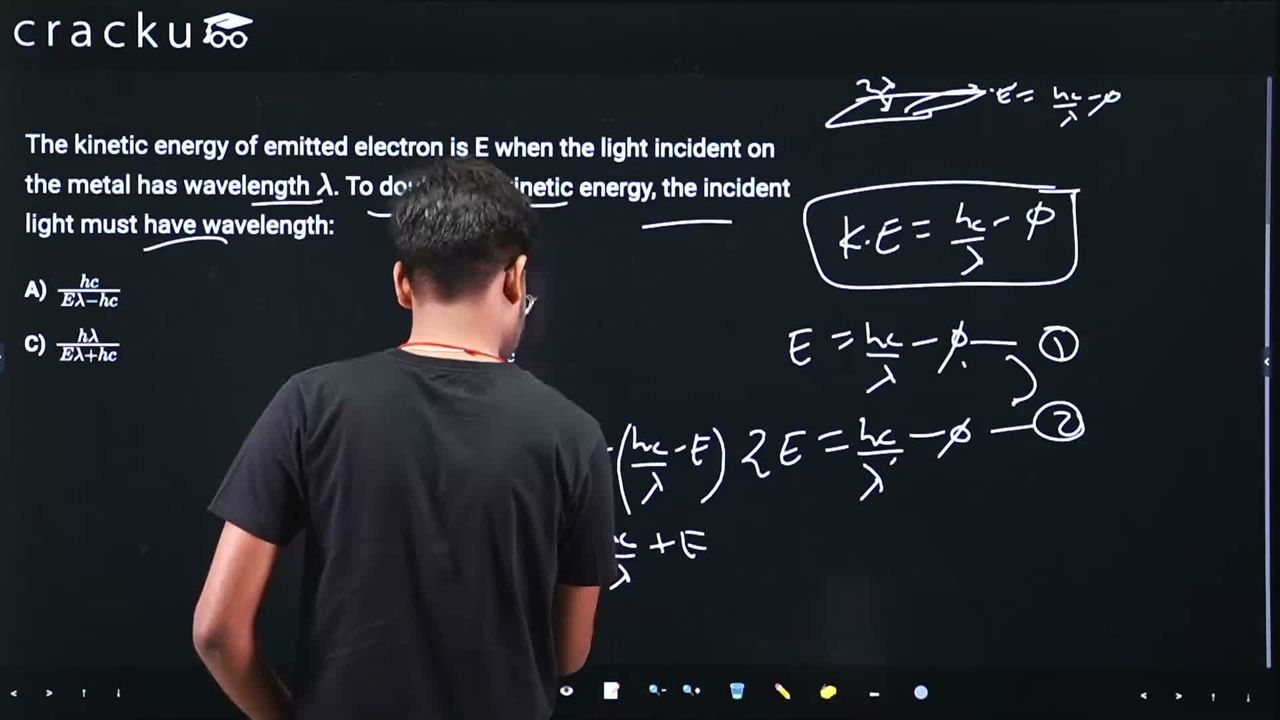 cracku
The kinetic energy of emitted electron is E when the light incident on
the metal has wavelength λ. To kinetic energy, the incident
light must have wavelength:
A) hc / Eλ−hc
C) hλ / Eλ+hc
2λ
E = hc/λ − φ
K.E = hc/λ − φ
E = hc/λ − φ — ①
2E = hc/λ' − φ — ②
(hc/λ − E)
+ E